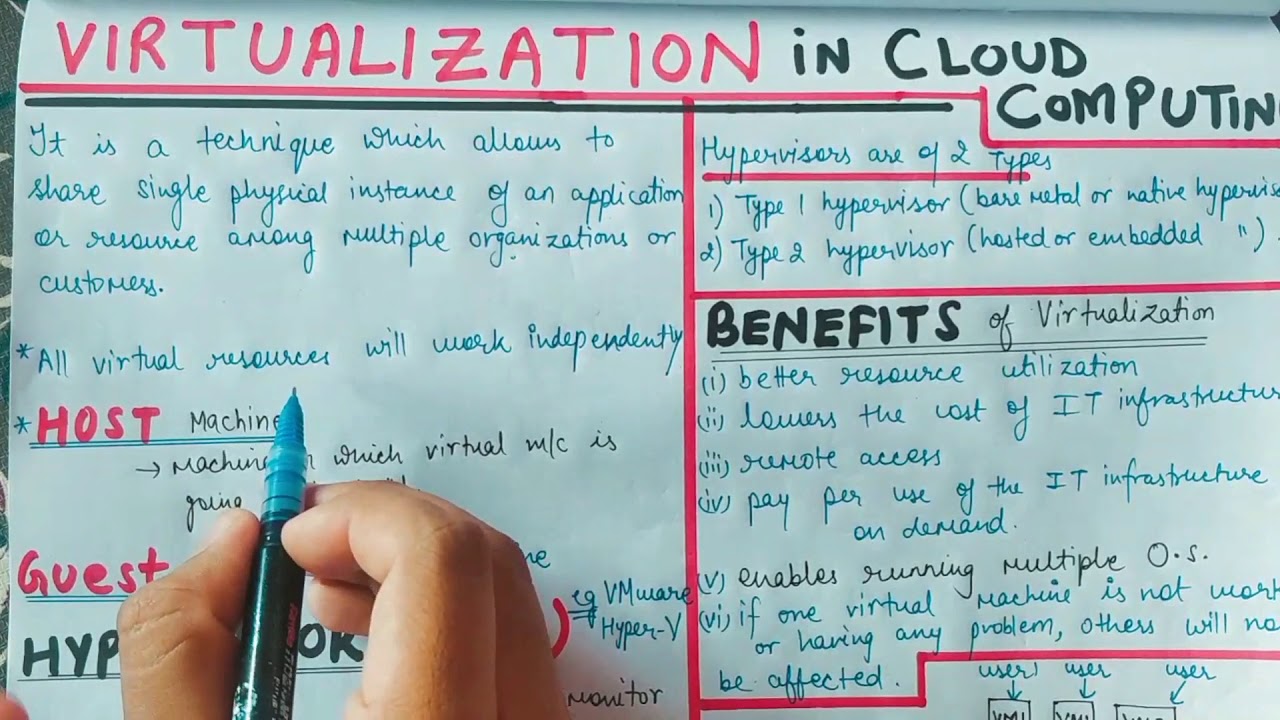 VIRTUALIZATION in CLOUD
COMPUTIN
It is a technique which allows to
share single physical instance of an application
or resource among multiple organizations or
customers.
*All virtual resources will work independently
*HOST Machine
→ Machine which virtual m/c is
going
Guest
ne
eg VMware
Hyper-V
HYP OR
monitor
Hypervisors are of 2 Types
1) Type 1 hypervisor (bare metal or native hypervis
2) Type 2 hypervisor (hosted or embedded ")
BENEFITS of Virtualization
(i) better resource utilization
(ii) lowers the cost of IT infrastructur
(iii) remote access
(iv) pay per use of the IT infrastructure
on demand.
(v) enables running multiple O.S.
(vi) if one virtual machine is not work
or having any problem, others will no
be affected.
user1 user user
VM1 VM2